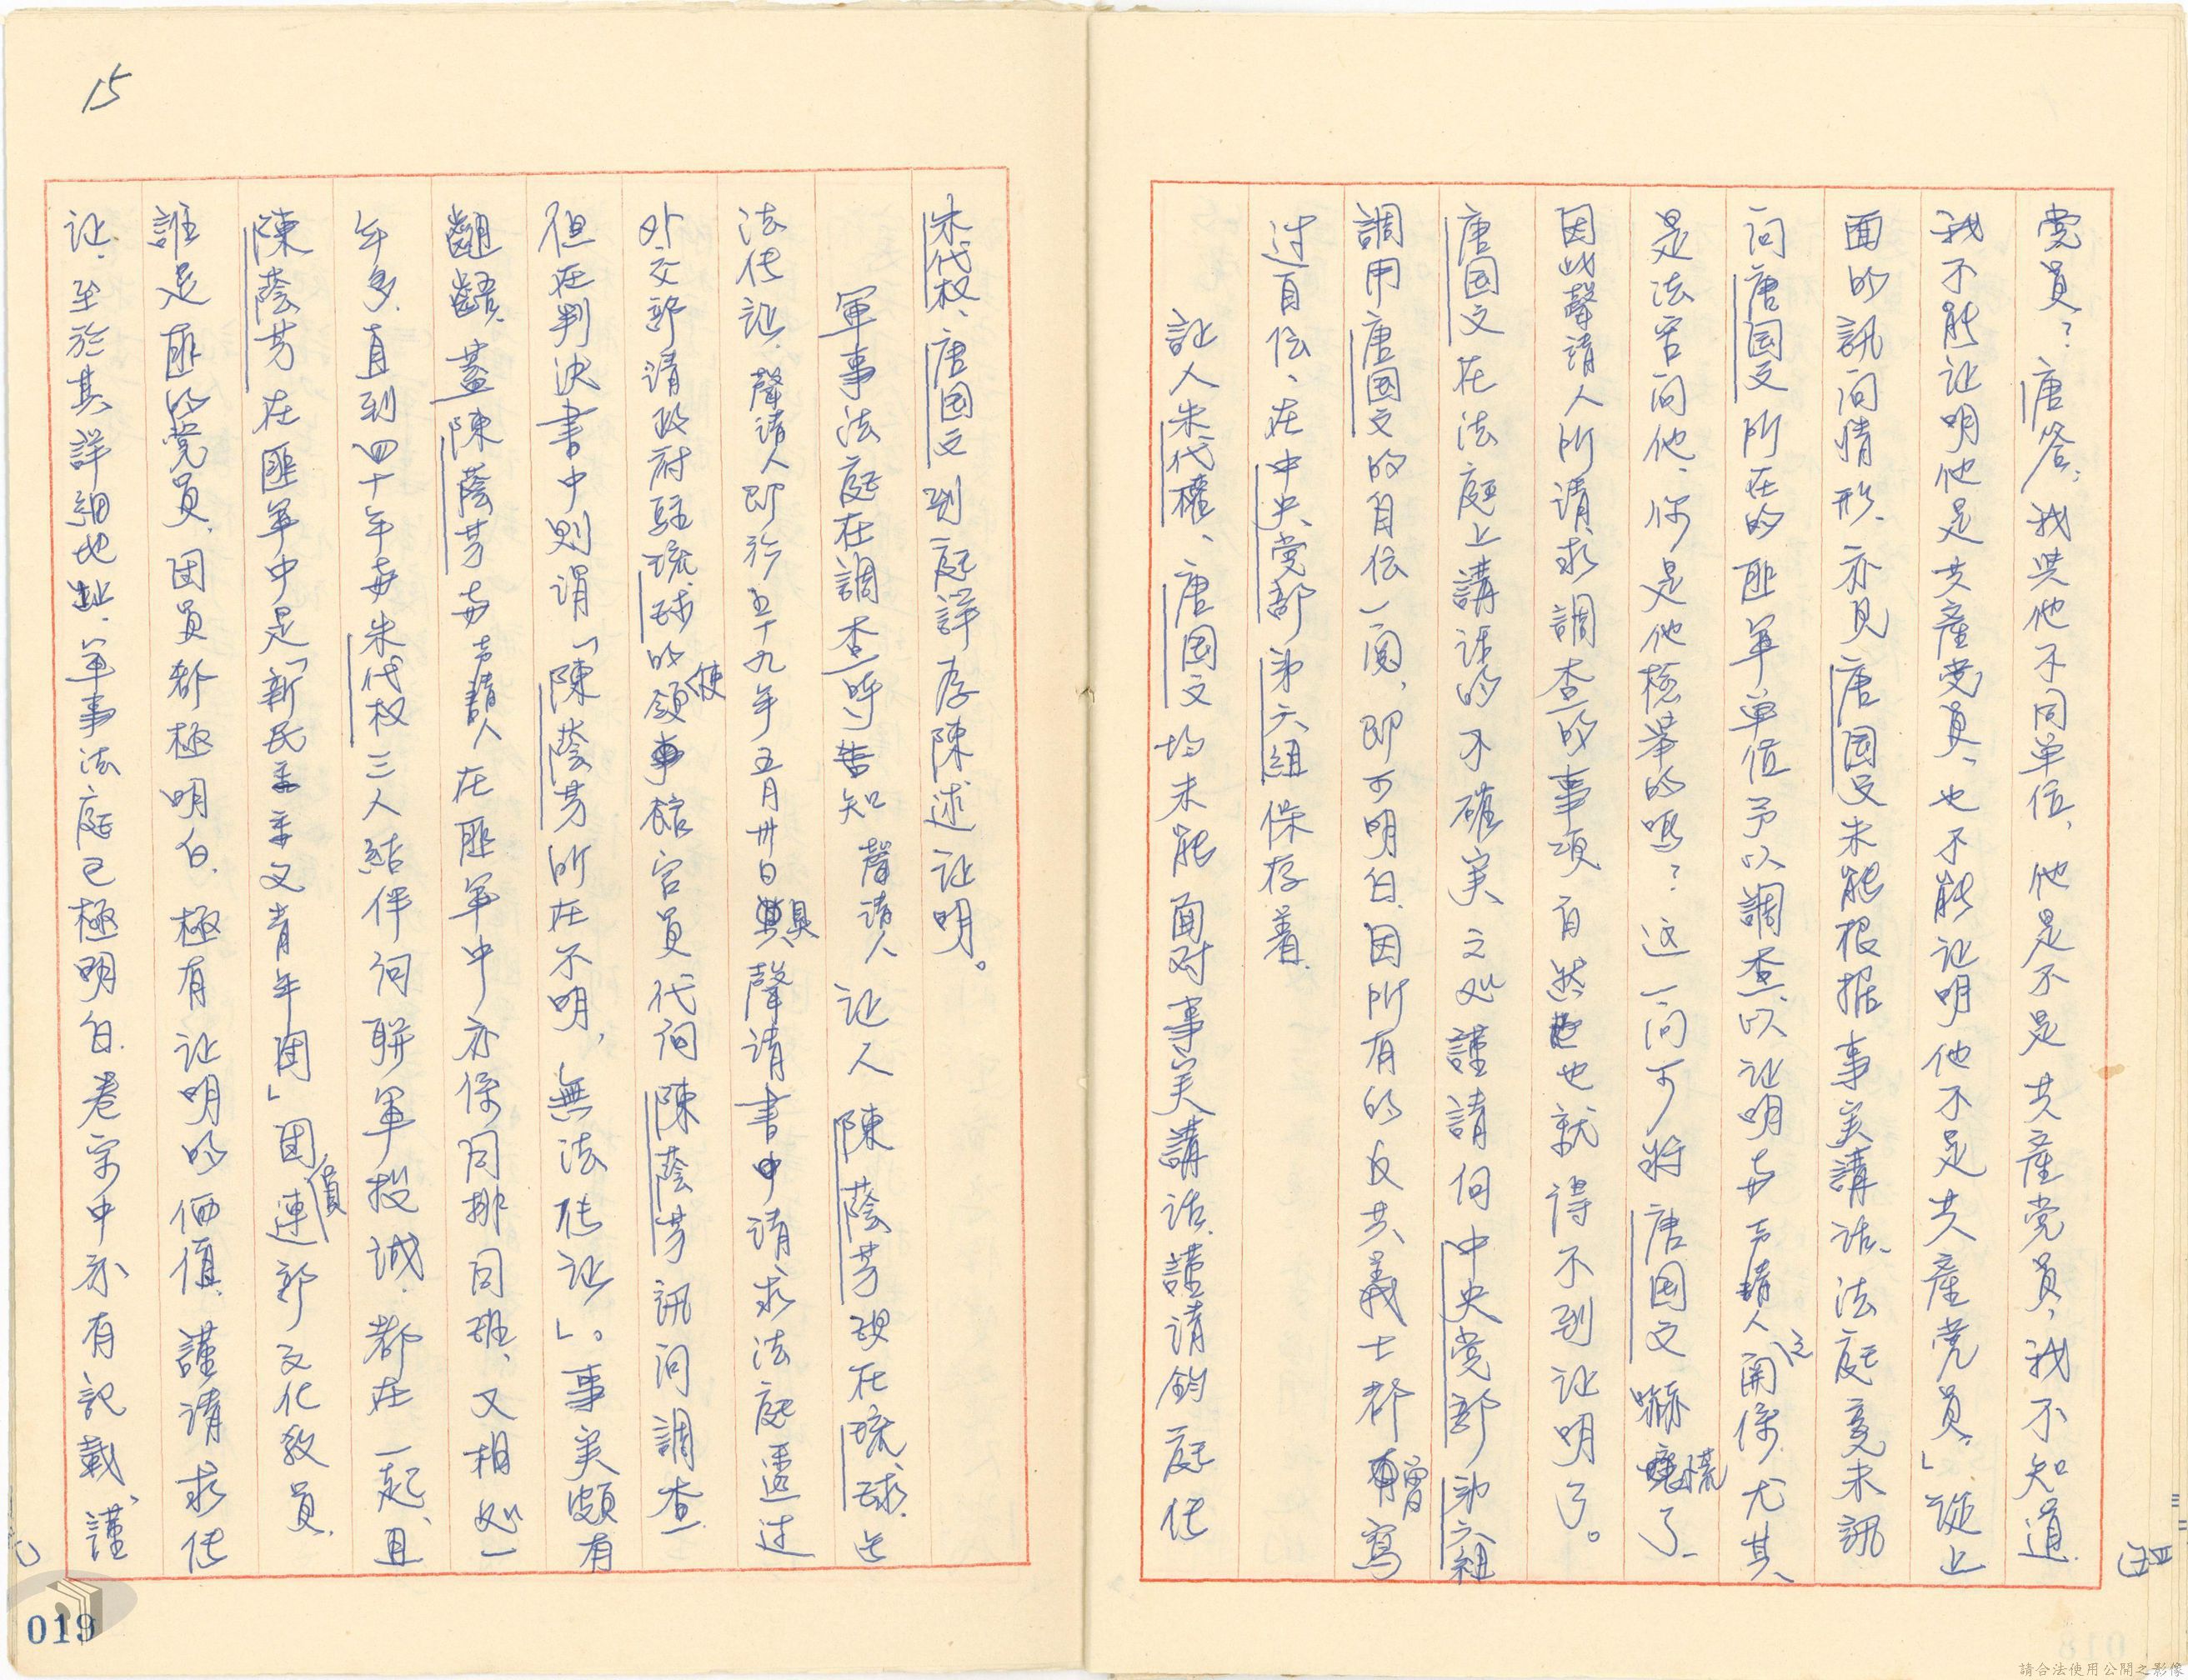 党員？唐答：我與他不同单位，他是不是共產党員，我不知道，
我不能证明他是共產党員，也不能证明他不是共產党員。」從上
面的訊问情形，亦見唐国文未能根据事实講话，法庭竟未訊
问唐国文所在的匪軍单位予以調查，以证明与声請人之関係，尤其
是法官问他，你是他檢举的嗎？这一问可将唐国文嚇慌了，
因此聲請人所请求調查的事項自然也就得不到证明了。
唐国文在法庭上講话的不確实之处，謹請向中央党部第六組
調用唐国文的自伝一閱，即可明白，因所有的反共義士都曾寫
过自伝，在中央党部第六組保存着。
証人朱代權、唐国文均未能面对事实講话，謹请鈞庭传
朱代权、唐国文到庭詳為陳述证明。
軍事法庭在調查時告知聲请人证人陳蔭芳現在琉球，无
法传证，聲请人即於五十九年五月卅日具聲请書中请求法庭透过
外交部请政府駐琉球的領使館官員代向陳蔭芳訊问調查，
但在判决書中则谓「陳蔭芳所在不明，無法传证」。事实頗有
齟齬，蓋陳蔭芳与声請人在匪軍中亦係同排同班，又相处一
年多，直到四十年与朱代权三人結伴向聯軍投誠，都在一起，且
陳蔭芳在匪軍中是「新民主主义青年团」团員連部文化教員，
誰是匪的党員，团員都極明白，極有证明的価值，謹请求传
证，至於其詳細地址，軍事法庭已極明白，卷宗中亦有記載，謹
15
四
019
請合法使用公開之影像